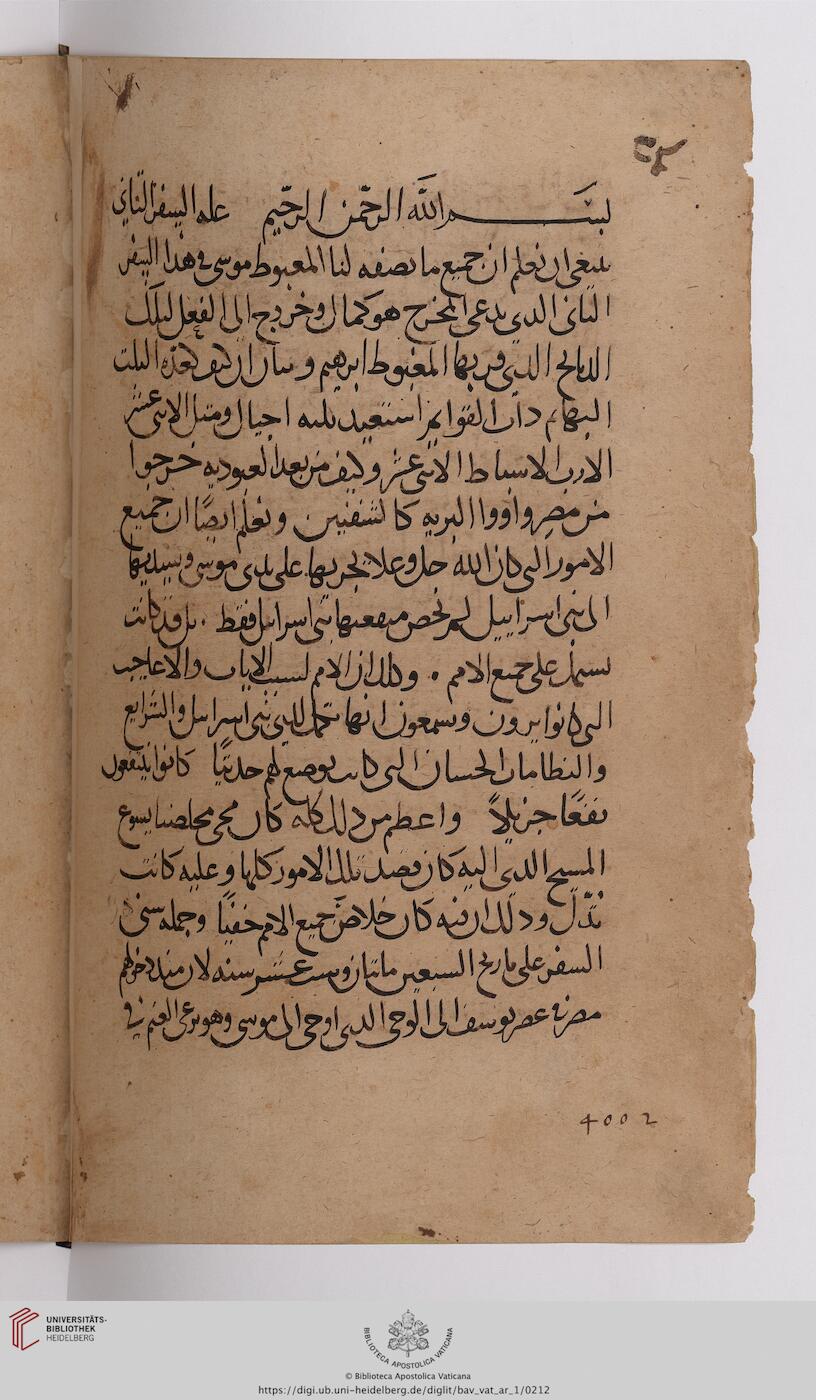 بسم الله الرحمن الرحيم عله السفر الثاني
ينبغي ان نعلم ان جميع ما يصفه لنا المغبوط موسى في هذا السفر
الثاني الدي يدعى المخرج هو كمال وخروج الى الفعل لتلك
الدبايح الدي قربها المغبوط ابرهيم وبيان ان كيف بعده
البهايم استعبد ثلثه اجيال ومثل الاثنى عشر
الاسباط الاثنى عشر وكيف من بعد العبوديه خرجوا
من مصر واووا البريه كالشفنين ونعلم ايضًا ان جميع
الامور التي كان الله جل وعلا يجريها على يدى موسى ويسديها
الى بنى اسراييل لم تخص منفعتها بنى اسرايل فقط . بل قد كانت
تشتمل على جميع الامم . وذلك ان الامم لسبب الايات والاعاجيب
التى كانوا يرون ويسمعون انها تحمل لبنى اسرايل والشرايع
والنظامات الحسان التي كانت توضع لهم حديثًا كانوا ينتفعون
نفعًا جزيلاً واعظم من ذلك كله كان مجى مخلصنا يسوع
المسيح الدي اليه كان قصد تلك الامور كلها وعليه كانت
تدّل ودلك ان فيه كان خلاص جميع الامم خفيًا وجمله سنى
السفر على تاريخ السبعين مايتان وست عشر سنه لان منذ دخولهم
مصر في عصر يوسف الى الوحى الدى اوحى الى موسى وهو يرعى الغنم في
4002
UNIVERSITÄTS-
BIBLIOTHEK
HEIDELBERG
BIBLIOTECA APOSTOLICA VATICANA
© Biblioteca Apostolica Vaticana
https://digi.ub.uni-heidelberg.de/diglit/bav_vat_ar_1/0212